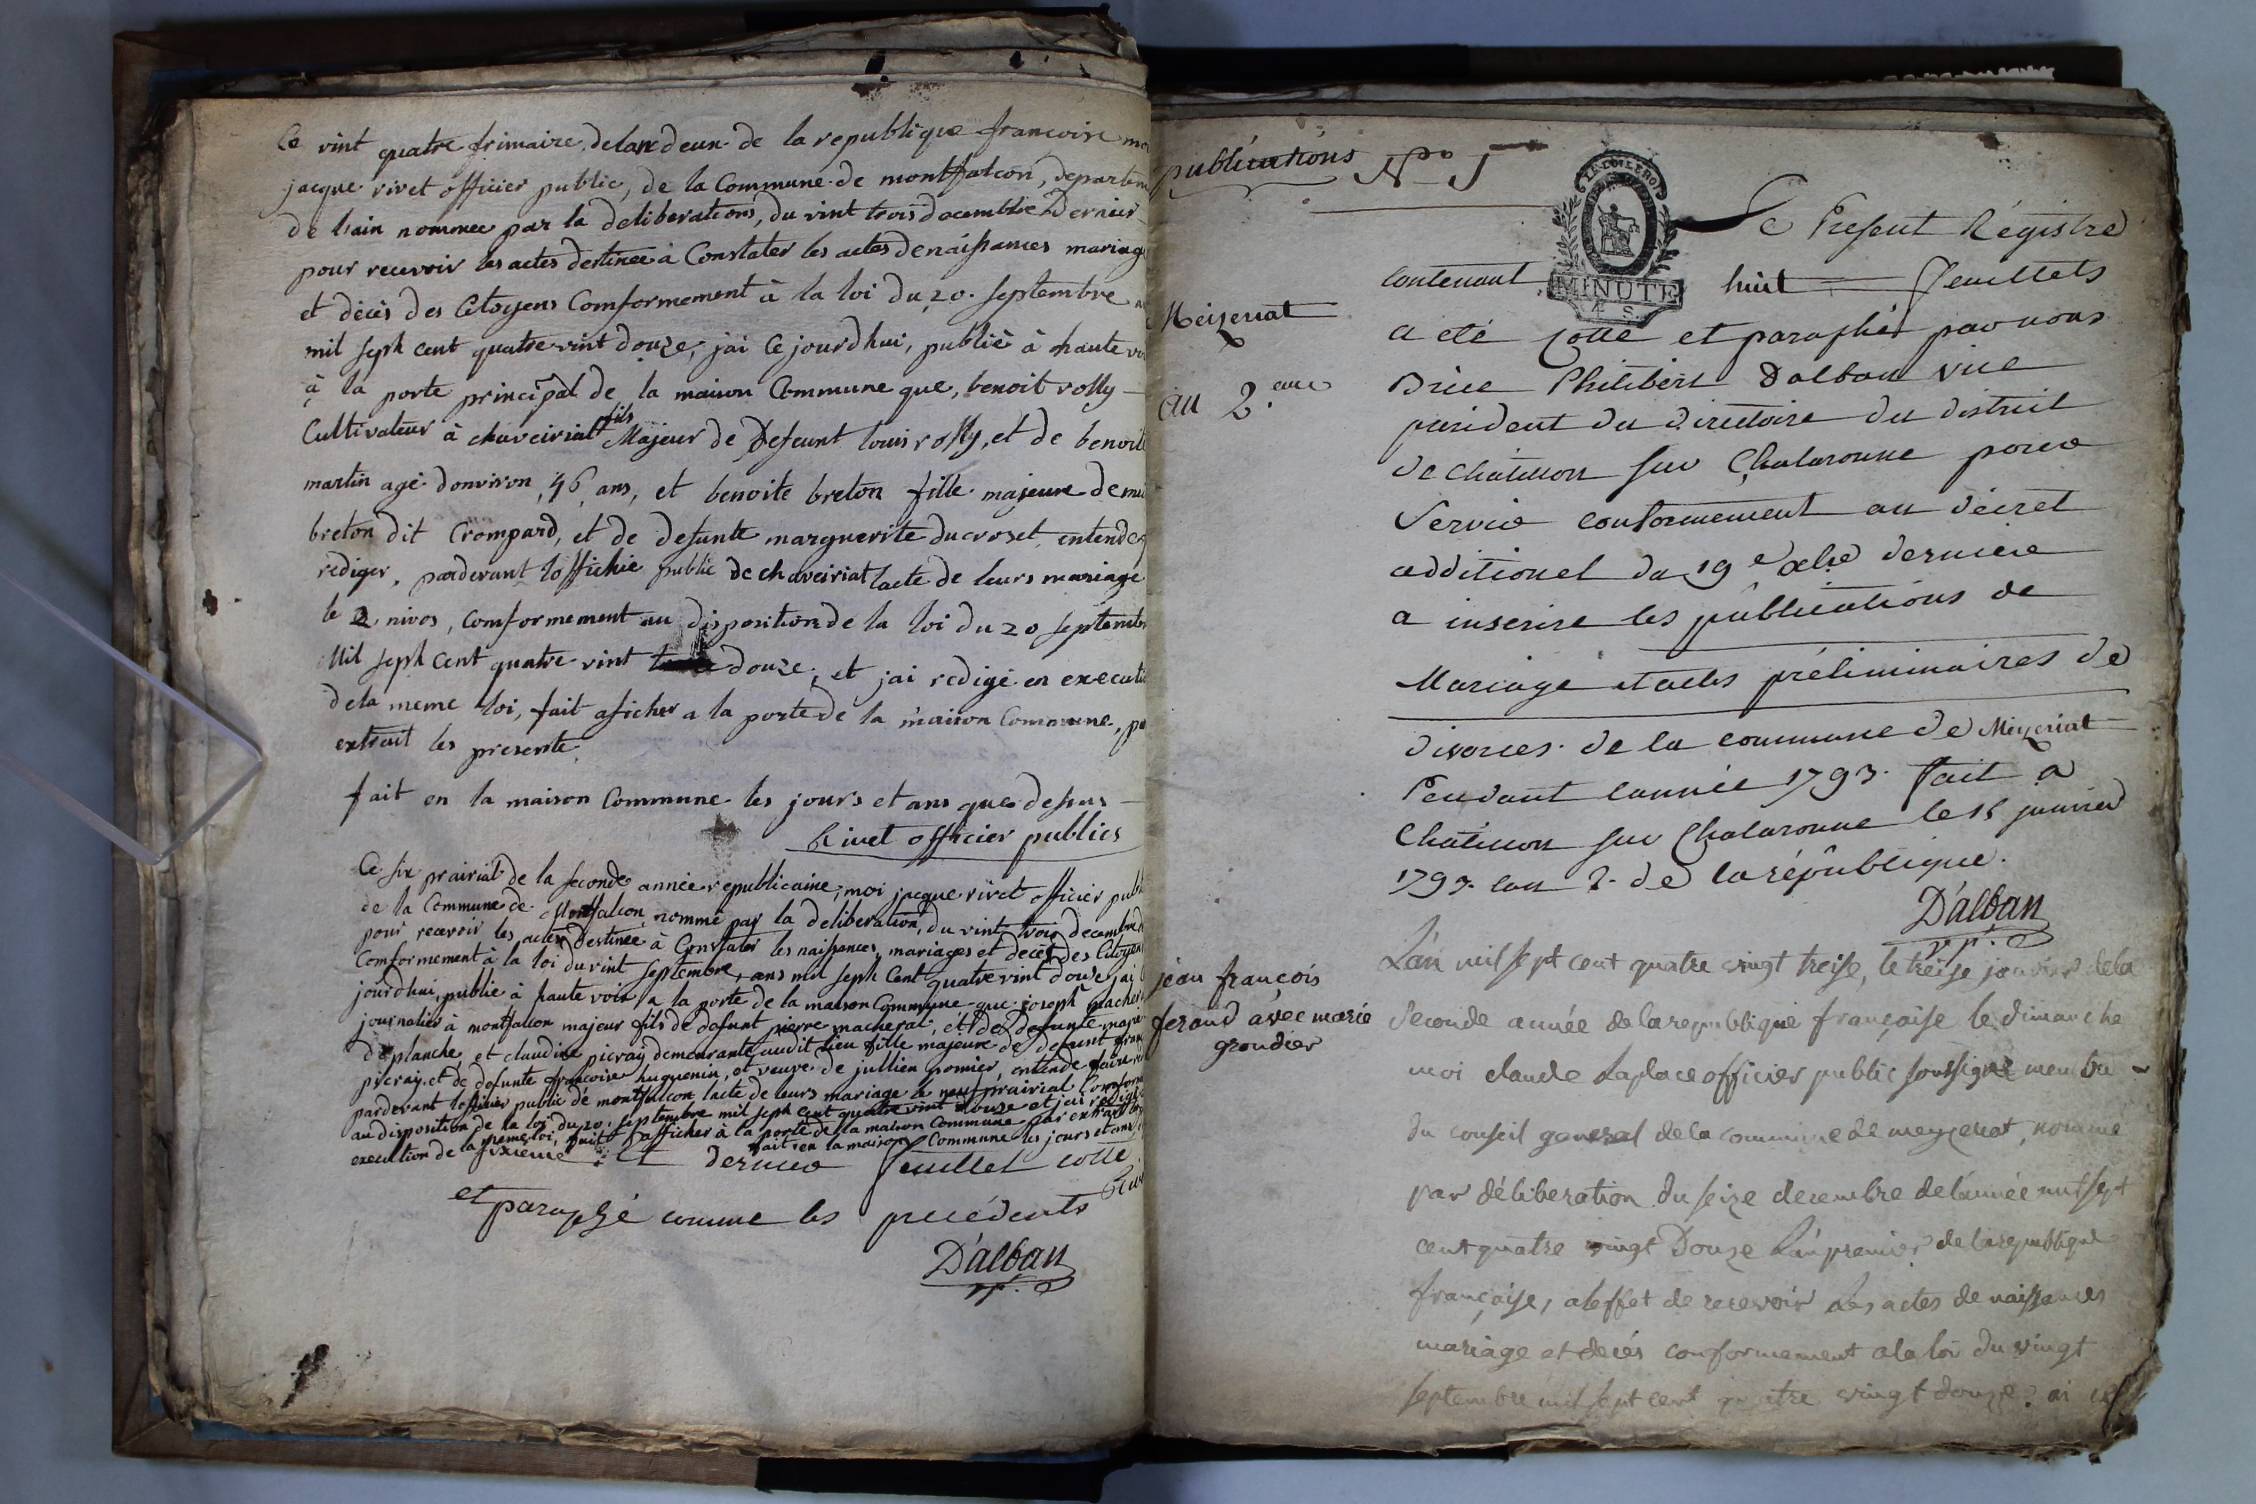 Ce vint quatre frimaire, delan deux de la republique francoise moi
jacque rivet officier public, de la Commune de montfalcon, departem
de lain nommee par la deliberations, du vint trois decembre Dernier
pour recevoir les actes destinee à Constater les actes de naissances mariage
et décès des Citoyens Comformement à la loi du 20. septembre
mil seph cent quatre vint douze, jai Ce jourdhui, publié à haute voi
à la porte principal de la maison Commune que, benoit rolly
Cultivateur à chaveiriat fils Majeur de Defeunt louis rolly, et de benoite
martin agé donviron 46 ans, et benoite breton fille majeure de
breton dit Crompard, et de defunte marguerite ducroset, entende
rediger, parderant loffichie public de chaveiriat lacte de leurs mariage
le 2 nivos, Comformement au disposition de la loi du 20 septembre
Mil seph Cent quatre vint douze, et jai redigé en executi
dela meme loi, fait aficher a la porte de la maison Commune, par
extrait les presente
fait en la maison Commune les jours et ans que dessus
Rivet officier publics
Ce six prairial de la seconde année republicaine, moi jacque rivet officier publi
de la Commune de Montfalcon nommé par la deliberation, du vint trois decembre
pour recevoir les actes destinee à Constater les naissances, mariages et decès des Citoyens
Comformement à la loi du vint septembre, ans mil seph Cent quatre vint douze jai
jourdhui, publie à haute voix a la porte de la maison Commune que joseph macheral
journalier à montfalcon majeur fils de defunt pierre macheral, et de defunte
deplanche et claudine picray demeurante audit lieu fille majeure de defunt fran
picray et de defunte francoise huguenin, et veuve de jullien pomier, entende faire
parderant lofficier public de montfalcon lacte de leurs mariage le neuf prairial Comforme
au disposition de la loi du 20. septembre mil seph cent quatre vint douze et jai redigé
execution de la meme loi, fait afficher à la porte de la maison Commune par extrait
fait en la maison Commune les jours et ans
sixieme et dernier feuillet cotté
et paraphé comme les precédents
D'alban
vp.
publications No 5
LA LOI LE ROI
Le Present Régistre
MINUTE
4 S.
contenant huit feuillets
Meizeriat
a été cotté et paraphé par nous
an 2.eme
Brice Philibert Dalban vice
president du directoire du district
de chatillon sur Chalaronne pour
servir conformement au décret
additionel du 19 e xbre derniere
a inscrire les publications de
Mariage et actes préliminaires de
divorces de la commune de Meizeriat
Pendant lannée 1793. fait a
Chatillon sur Chalaronne le 15 janvier
1793. lan 2. de la république.
D'alban
vp.
jean françois
ferand avec marie
grondier
L'an mil sept cent quatre vingt treise, le treise janvier dela
Seconde année de la republique françoise le dimanche
moi claude Laplace officier public soussigné membre
du conseil general de la commune de mezeriat, nommé
par déliberation du seize decembre de lannée mil sept
cent quatre vingt Douze L'an premier de la republique
françoise, aleffet de recevoir les actes de naissances
mariage et décés conformement a la loi du vingt
septembre mil sept cent quatre vingt douze, ai